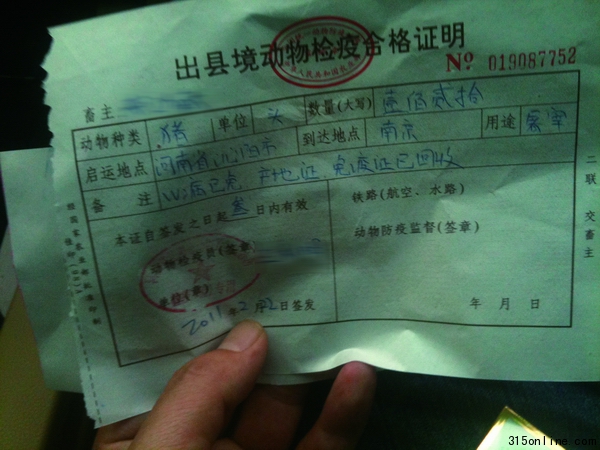 出县境动物检疫合格证明
No 019087752
畜主
动物种类 猪 单位 头 数量(大写) 壹佰贰拾
启运地点 河南省沁阳市 到达地点 南京 用途 屠宰
备注 消已免 产地证、免疫证已回收
本证自签发之日起叁日内有效
动物检疫员(签章)
单位(章)
2011年2月22日签发
铁路(航空、水路)
动物防疫监督(签章)
年 月 日
二联 交畜主
315online.com